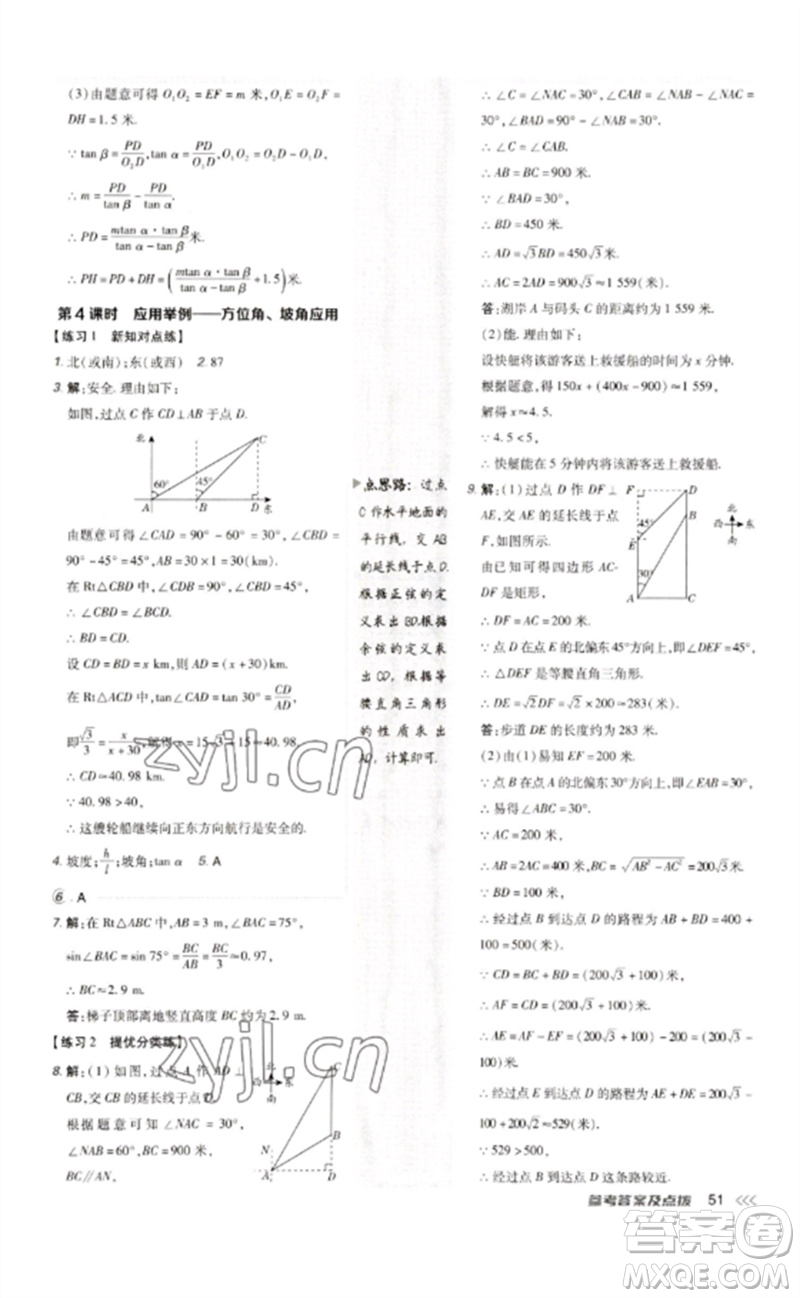 (3)由题意可得 O₁O₂ = EF = m 米,O₁E = O₂F =
DH = 1.5 米.
∵ tan β = PD/O₂D, tan α = PD/O₁D, O₁O₂ = O₂D − O₁D,
∴ m = PD/tan β − PD/tan α.
∴ PD = mtan α·tan β/(tan α−tan β) 米.
∴ PH = PD + DH = (mtan α·tan β/(tan α−tan β) + 1.5) 米.
第 4 课时 应用举例——方位角、坡角应用
【练习 1 新知对点练】
1. 北(或南);东(或西) 2. 87
3. 解:安全. 理由如下:
如图,过点 C 作 CD⊥AB 于点 D.
北 C
60° 45°
A B D 东
由题意可得∠CAD = 90° − 60° = 30°,∠CBD =
90° − 45° = 45°,AB = 30×1 = 30(km).
在 Rt△CBD 中,∠CDB = 90°,∠CBD = 45°,
∴ ∠CBD = ∠BCD.
∴ BD = CD.
设 CD = BD = x km,则 AD = (x + 30) km.
在 Rt△ACD 中,tan∠CAD = tan 30° = CD/AD,
即 √3/3 = x/(x+30),解得 x = 15√3 + 15≈40.98,
∴ CD≈40.98 km.
∵ 40.98 >40,
∴ 这艘轮船继续向正东方向航行是安全的.
4. 坡度;h/l;坡角;tan α 5. A
6. A
7. 解:在 Rt△ABC 中,AB = 3 m,∠BAC = 75°,
sin∠BAC = sin 75° = BC/AB = BC/3 ≈
∴ BC≈2.9 m.
答:梯子顶部离地竖直高度 BC 约为 2.9 m.
【练习 2 提优分类练】
8. 解:(1) 如图,过点 A 作 AD⊥
CB,交 CB 的延长线于点 D.
根据题意可得 ∠NAC = 30°,
∠NAB = 60°,BC = 900 米,
BC∥AN,
北 西 东 南
C B N A D
点思路:过点
C 作水平地面的
平行线,交 AB
的延长线于点 D.
根据正弦的定
义求出 BD.根据
余弦的定义求
出 CD, 根据等
腰直角三角形
的性质求出
AD,计算即可.
∴ ∠C = ∠NAC = 30°,∠CAB = ∠NAB − ∠NAC =
30°,∠BAD = 90° − ∠NAB = 30°.
∴ ∠C = ∠CAB.
∴ AB = BC = 900 米.
∵ ∠BAD = 30°,
∴ BD = 450 米.
∴ AD = √3BD = 450√3 米.
∴ AC = 2AD = 900√3≈1 559 米.
答:湖岸 A 与码头 C 的距离约为 1 559 米.
(2)能. 理由如下:
设快艇将该游客送上救援船的时间为 x 分钟.
根据题意,得 150x + (400x−900)≈1 559,
解得 x≈4.5.
∵ 4.5<5,
∴ 快艇能在 5 分钟内将该游客送上救援船.
9. 解:(1) 过点 D 作 DF ⊥
AE,交 AE 的延长线于点
F,如图所示.
由已知可得四边形 AC-
DF 是矩形,
F D 45° B E 30° A C
北 西 东 南
∴ DF = AC = 200 米.
∵ 点 D 在点 E 的北偏东 45°方向上,即∠DEF = 45°,
∴ △DEF 是等腰直角三角形.
∴ DE = √2DF = √2×200≈283(米).
答:步道 DE 的长度约为 283 米.
(2)由(1)易知 EF = DF = 200 米.
∵ 点 B 在点 A 的北偏东 30°方向上,即∠EAB = 30°,
∴ 易得∠ABC = 30°.
∵ AC = 200 米,
∴ AB = 2AC = 400 米,BC = √(AB²−AC²) = 200√3 米.
∵ BD = 100 米,
∴ 经过点 B 到达点 D 的路程为 AB + BD = 400 +
100 = 500(米).
∵ CD = BC + BD = (200√3 + 100)米,
∴ AF = CD = (200√3 + 100)米.
∴ AE = AF − EF = (200√3 + 100) − 200 = (200√3 −
100)米.
∴ 经过点 E 到达点 D 的路程为 AE + DE = 200√3 −
100 + 200√2≈529(米).
∵ 529>500,
∴ 经过点 B 到达点 D 这条路较近.
参考答案及点拨 51
zyjl.cn
zyjl.cn
答案卷
MXQE.COM